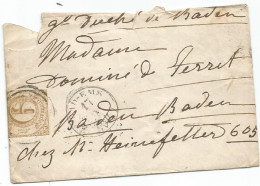 gd Duché de Baden
Madame
Dominé de Ferret
Baden Baden
chez Mr Heinefetter 605
6
BAD-EMS
17